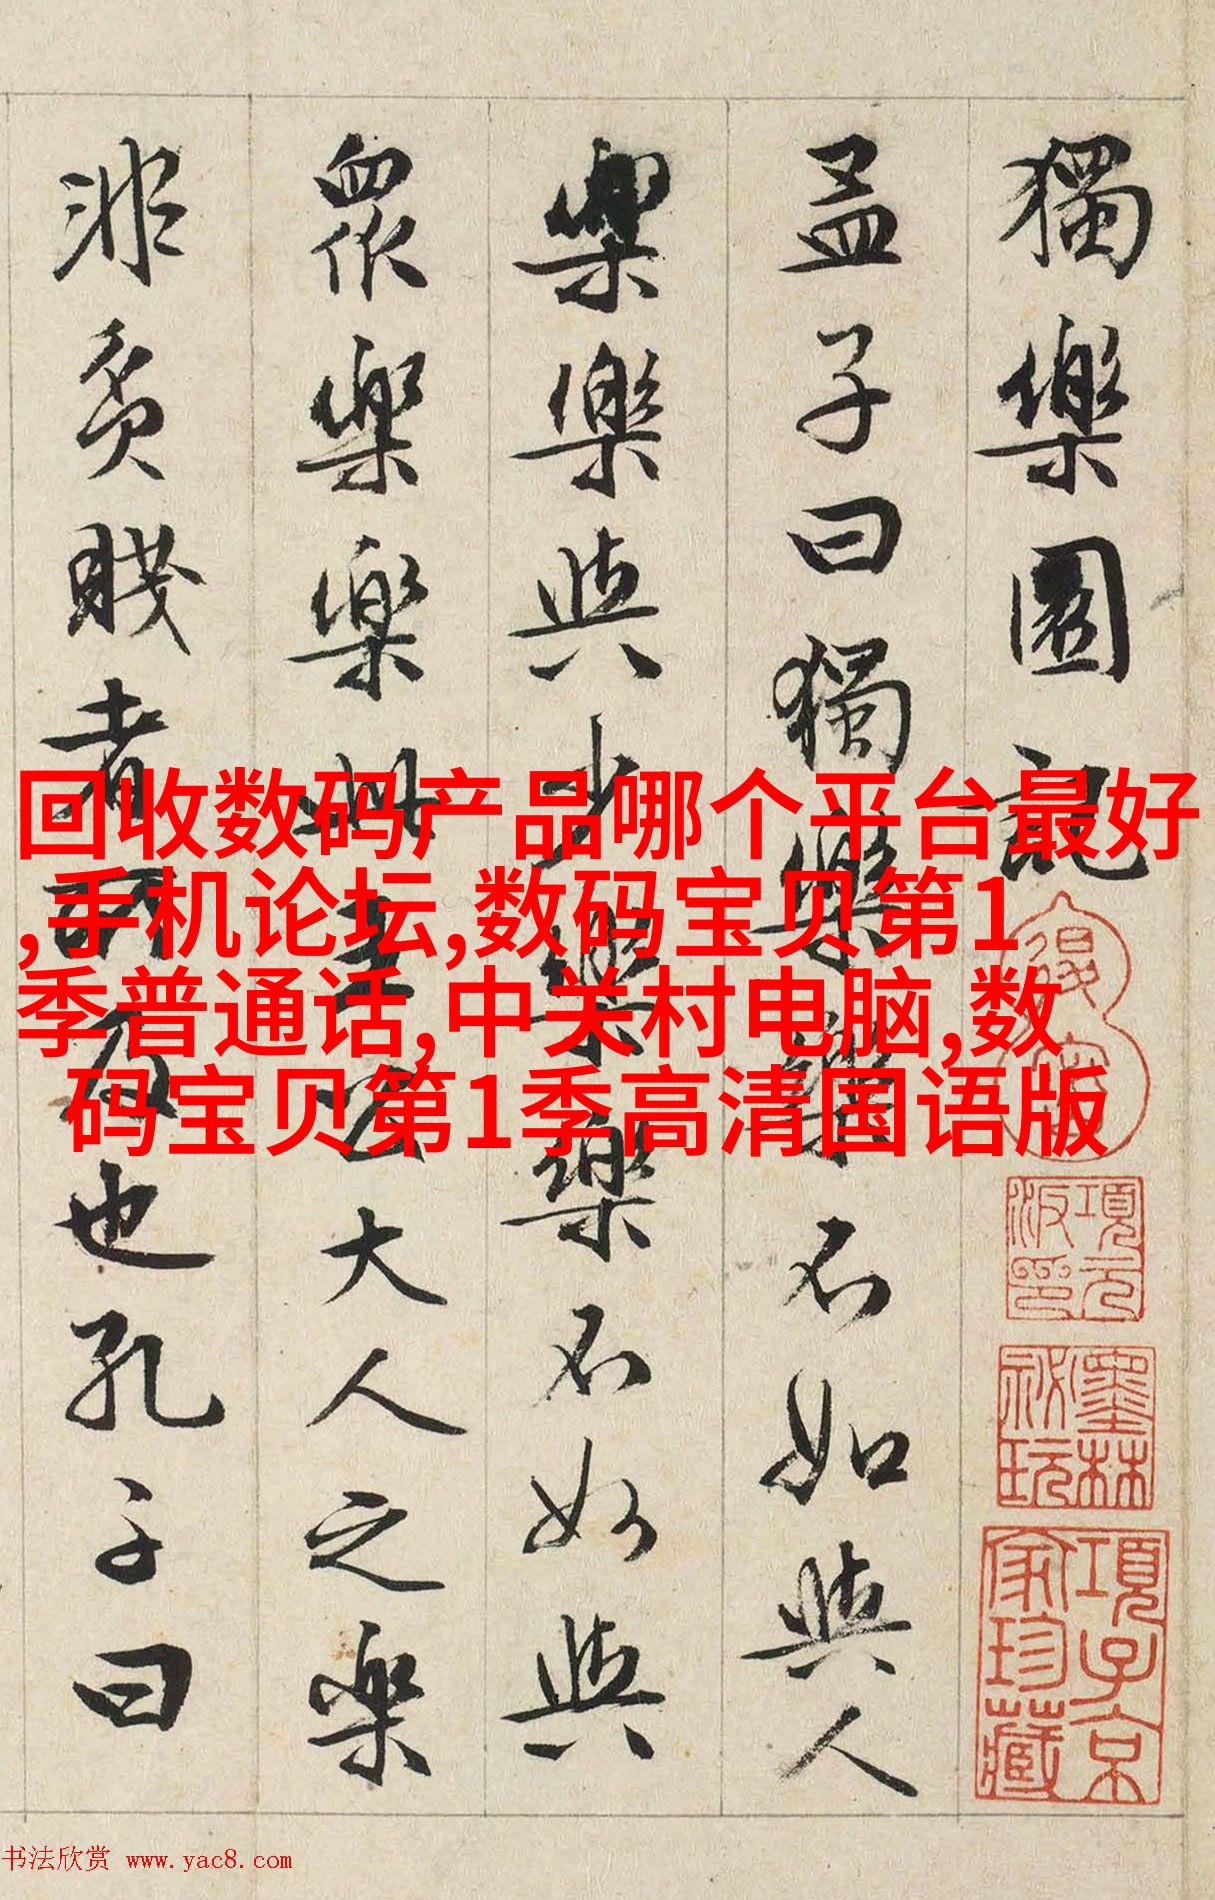 獨樂園記
孟子曰獨樂樂不如與人
樂樂與少樂樂不如與
衆樂樂此王公大人之樂
非貧賤者所及也孔子曰
回收数码产品哪个平台最好
,手机论坛,数码宝贝第1
季普通话,中关村电脑,数
码宝贝第1季高清国语版
項元汴印
墨林祕玩
項子京家珍藏
书法欣赏 www.yac8.com